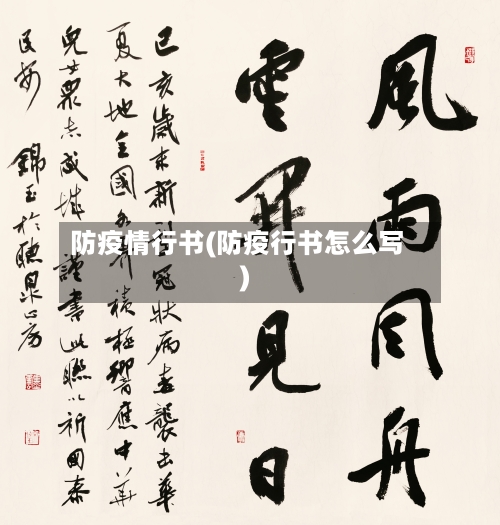 風雨同舟
雲開見日
己亥歲末新型冠狀病毒襲击華
夏大地全國各界積極響應中華
兒女眾志成城謹書此聯以祈國泰
民安 錦玉於聽泉山房
防疫情行书(防疫行书怎么写
)